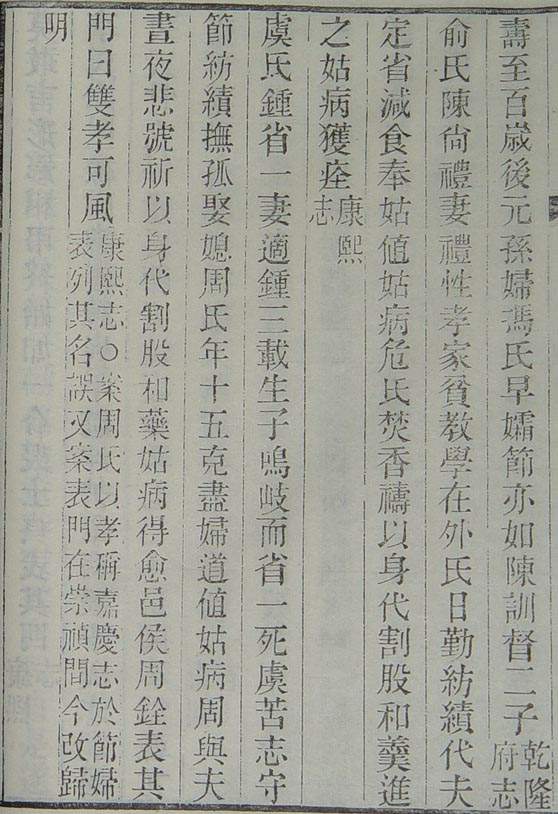 壽至百歲後元孫婦馮氏早孀節亦如陳訓督二子乾隆府志
俞氏陳尙禮妻禮性孝家貧教學在外氏日勤紡績代夫
定省減食奉姑値姑病危氏焚香禱以身代割股和羹進
之姑病獲痊康熙志
虞氏鍾省一妻適鍾三載生子鳴岐而省一死虞苦志守
節紡績撫孤娶媳周氏年十五克盡婦道値姑病周與夫
晝夜悲號祈以身代割股和藥姑病得愈邑侯周銓表其
門曰雙孝可風康熙志○案周氏以孝稱嘉慶志於節婦表列其名誤又案表門在崇禎間今改歸
明